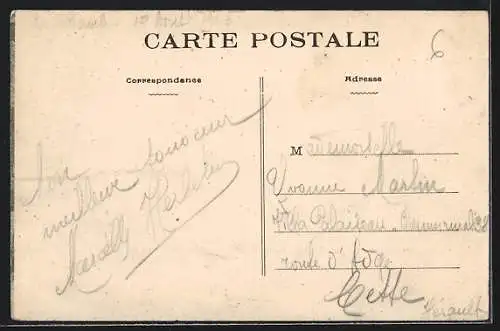 1er Août
6
CARTE POSTALE
Correspondance
Adresse
Mon
meilleur souvenir
Marcelle
Mademoiselle
Yvonne Martin
Villa
route d'Agde
Cette
Hérault